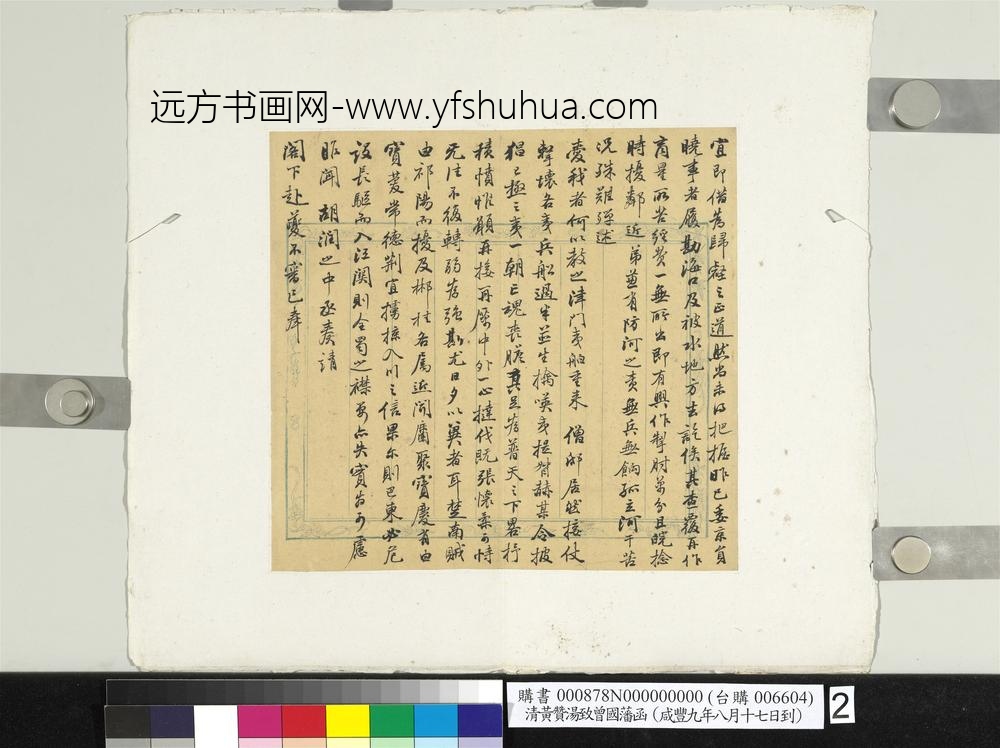 远方书画网-www.yfshuhua.com
宜即借為歸壑之正道然尚未得把握昨已委京員
曉事者履勘海口及被水地方去訖俟其查覆再作
商量所苦經費一無所出即有興作掣肘萬分且皖捻
時擾鄰近弟兼有防河之責無兵無餉孤立河干苦
況殊難殫述
愛我者何以教之津門夷舶重來僧邸居然接仗
擊壞各夷兵船過半並生擒嘆夷提督赫某令披
猖已極之夷一朝亡魂喪膽真足為普天之下畧抒
積憤惟願再接再厲中外一心撻伐既張懷柔可恃
无往不復轉弱為強斯尤日夕以冀者耳楚南賊
由祁陽而擾及郴桂各屬近聞屬聚寶慶有由
寶菱常德荆宜擄掠入川之信果尔則巴東必危
設長驅而入江關則全蜀之襟要亦失實為可慮
昨聞胡潤之中丞奏請
閣下赴夔不審已奉
購書 000878N000000000 (台購 006604)
清黃贊湯致曾國藩函 (咸豐九年八月十七日到)
2